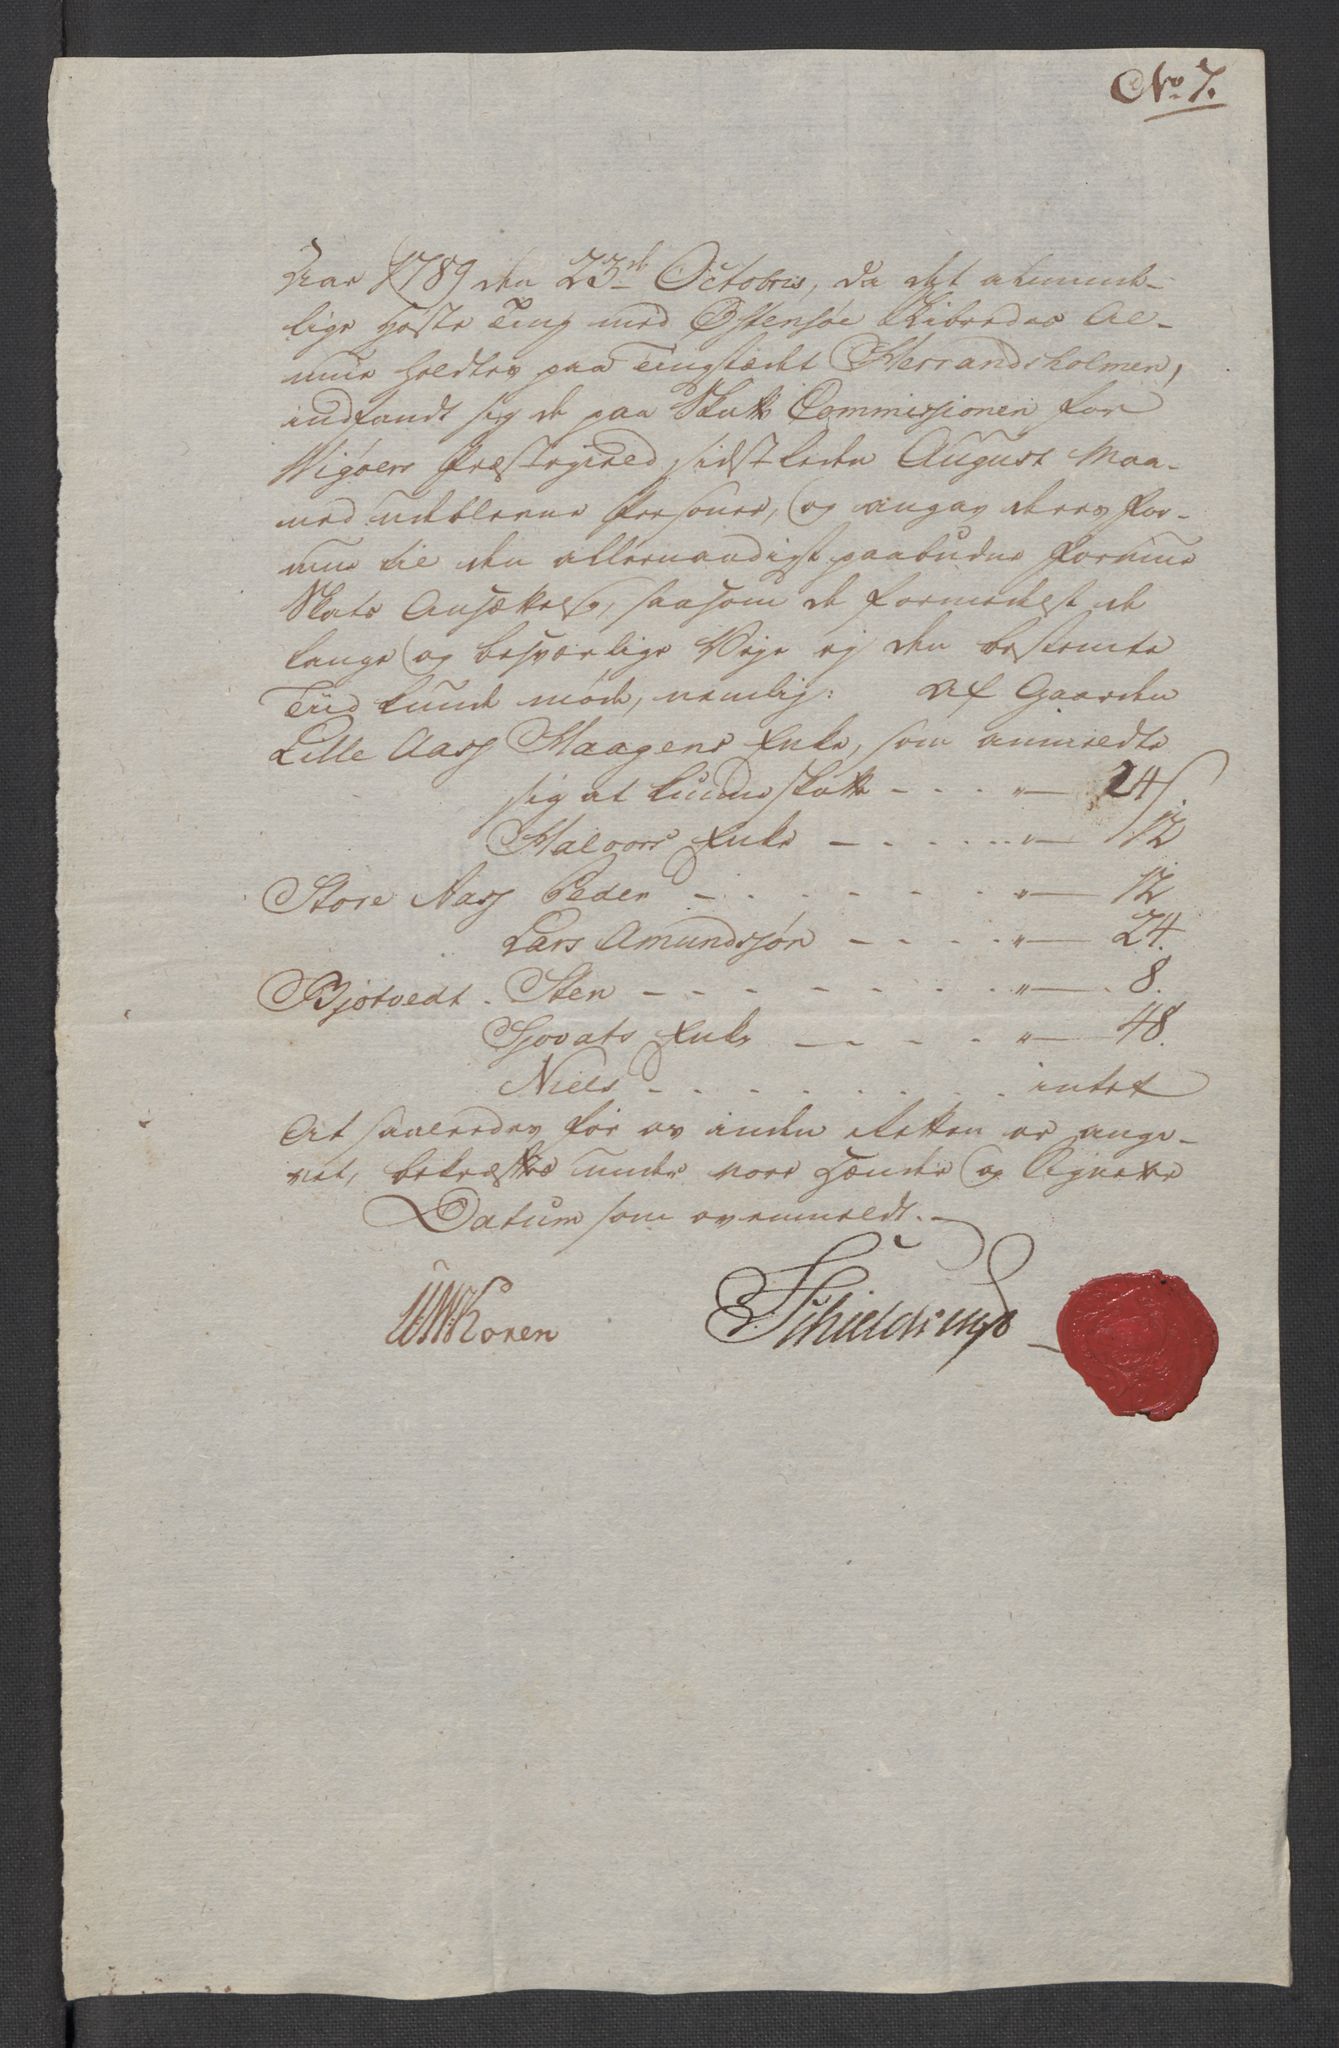 No 7.
Aar 1789 den 23de Octobris, da det almind-
lige Høste Ting med Østensøe Skibredes Al-
mue holdtes paa Tingstædet Herrandsholmen,
indfandt sig de paa Skatte Commissionen for
Wigøers Præstegield sidstleden August Maa-
ned udeblevne Personer, og angav deres For-
mue til den allernaadigst paabudne Formue
Skats Ansættelse, saasom de formedelst de
lange og besværlige Veje ej den bestemte
Tiid kunde møde, nemlig: Af Gaarden
Lille Aasj Haagens Enke, som anmeldte
sig at kunde skatte - - - " — 24 s
Halvors Enke — - - - " — 12
Store Aasj Peder - - - - " — 12.
Lars Amundsjøn - - - - " — 24.
Bjotvedt. Sten - - - - - " — 8.
Sjovats Enke — - - - " — 48.
Niels - - - - - - intet
At saaledes for os inden Retten er angi-
vet, bekræftes under vore Hænder og Signeter
Datum som ovenmeldt.
UWKoren Schieldrup